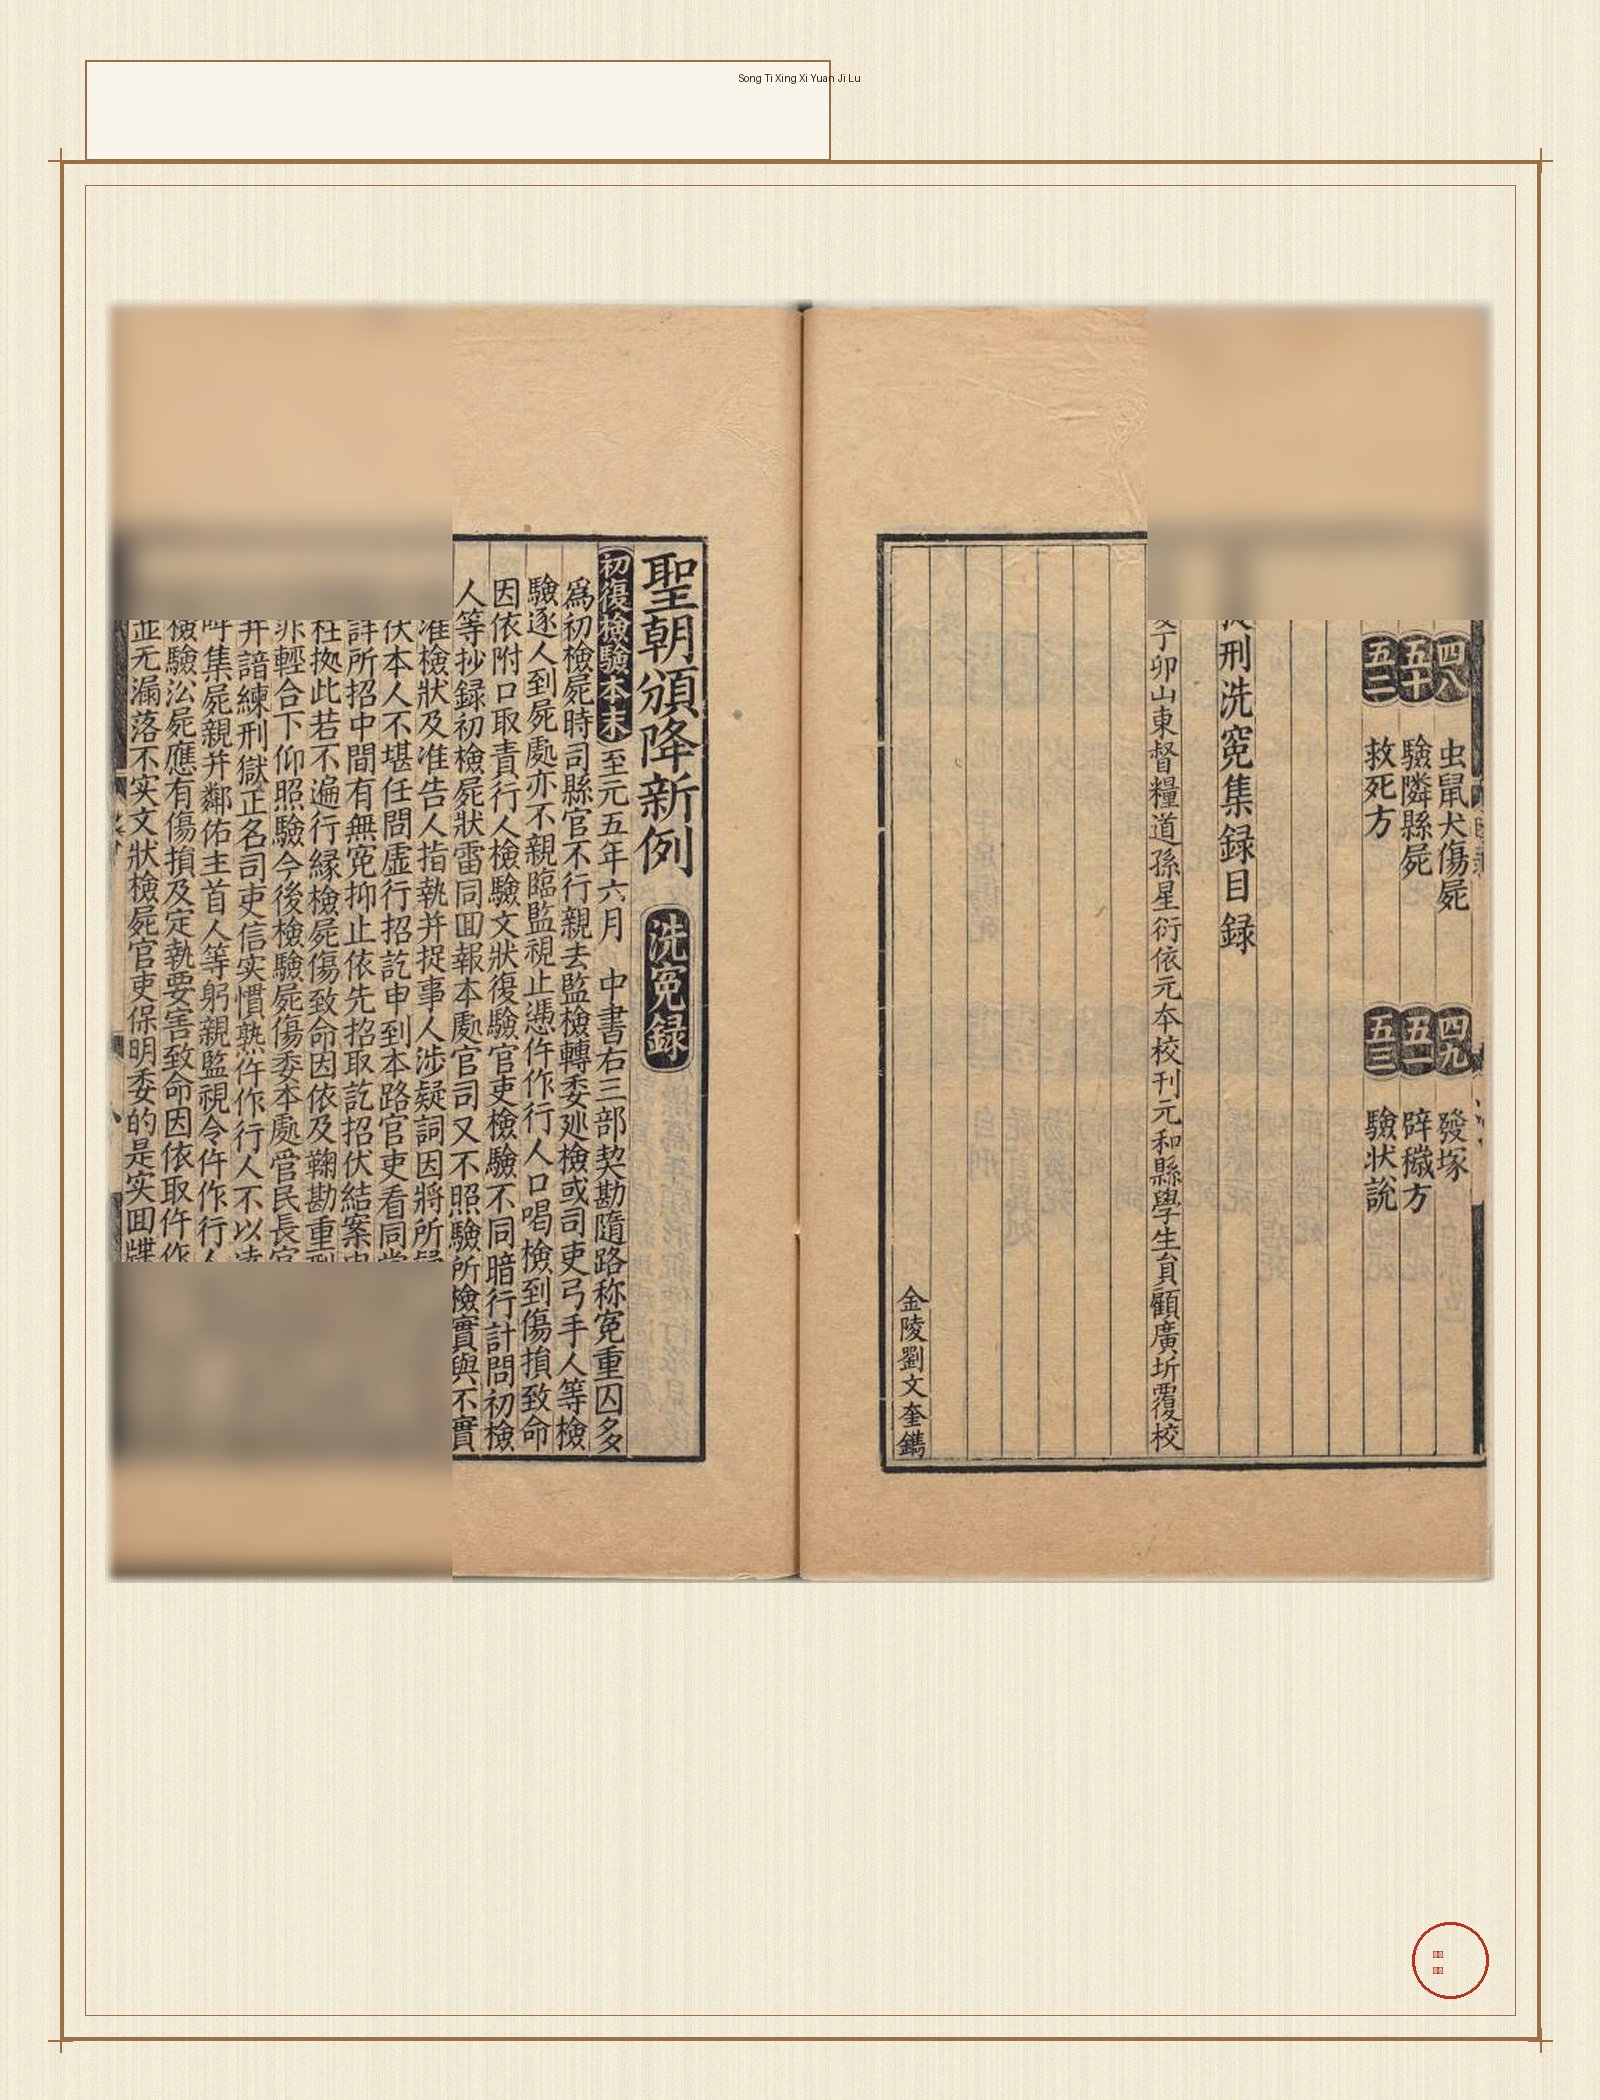 Song Ti Xing Xi Yuan Ji Lu
四八 虫鼠犬傷屍 四九 發塚
五十 驗隣縣屍 五一 辟穢方
五二 救死方 五三 驗状說
刑洗寃集録目録
丁卯山東督糧道孫星衍依元本校刊元和縣學生員顧廣圻覆校
金陵劉文奎鐫
聖朝頒降新例 洗寃録
初復檢驗本末 至元五年六月 中書右三部契勘隨路称寃重囚多
爲初檢屍時司縣官不行親去監檢轉委廵檢或司吏弓手人等檢
驗逐人到屍處亦不親臨監視止憑仵作行人口喝檢到傷損致命
因依附口取責行人檢驗文狀復驗官吏檢驗不同暗行計問初檢
人等抄録初檢屍狀雷同回報本處官司又不照驗所檢實與不實
准檢狀及准告人指執并捉事人涉疑詞因將所
伏本人不堪任問虛行招訖申到本路官吏看同
詳所招中間有無寃抑止依先招取訖招伏結案
枉拠此若不遍行縁檢屍傷致命因依及鞠勘重
非輕合下仰照驗今後檢驗屍傷委本處管民長官
并諳練刑獄正名司吏信实慣熟仵作行人不以
呼集屍親并鄰佑主首人等躬親監視令仵作行人
檢驗訟屍應有傷損及定執要害致命因依取仵作
並无漏落不实文狀檢屍官吏保明委的是实回牒